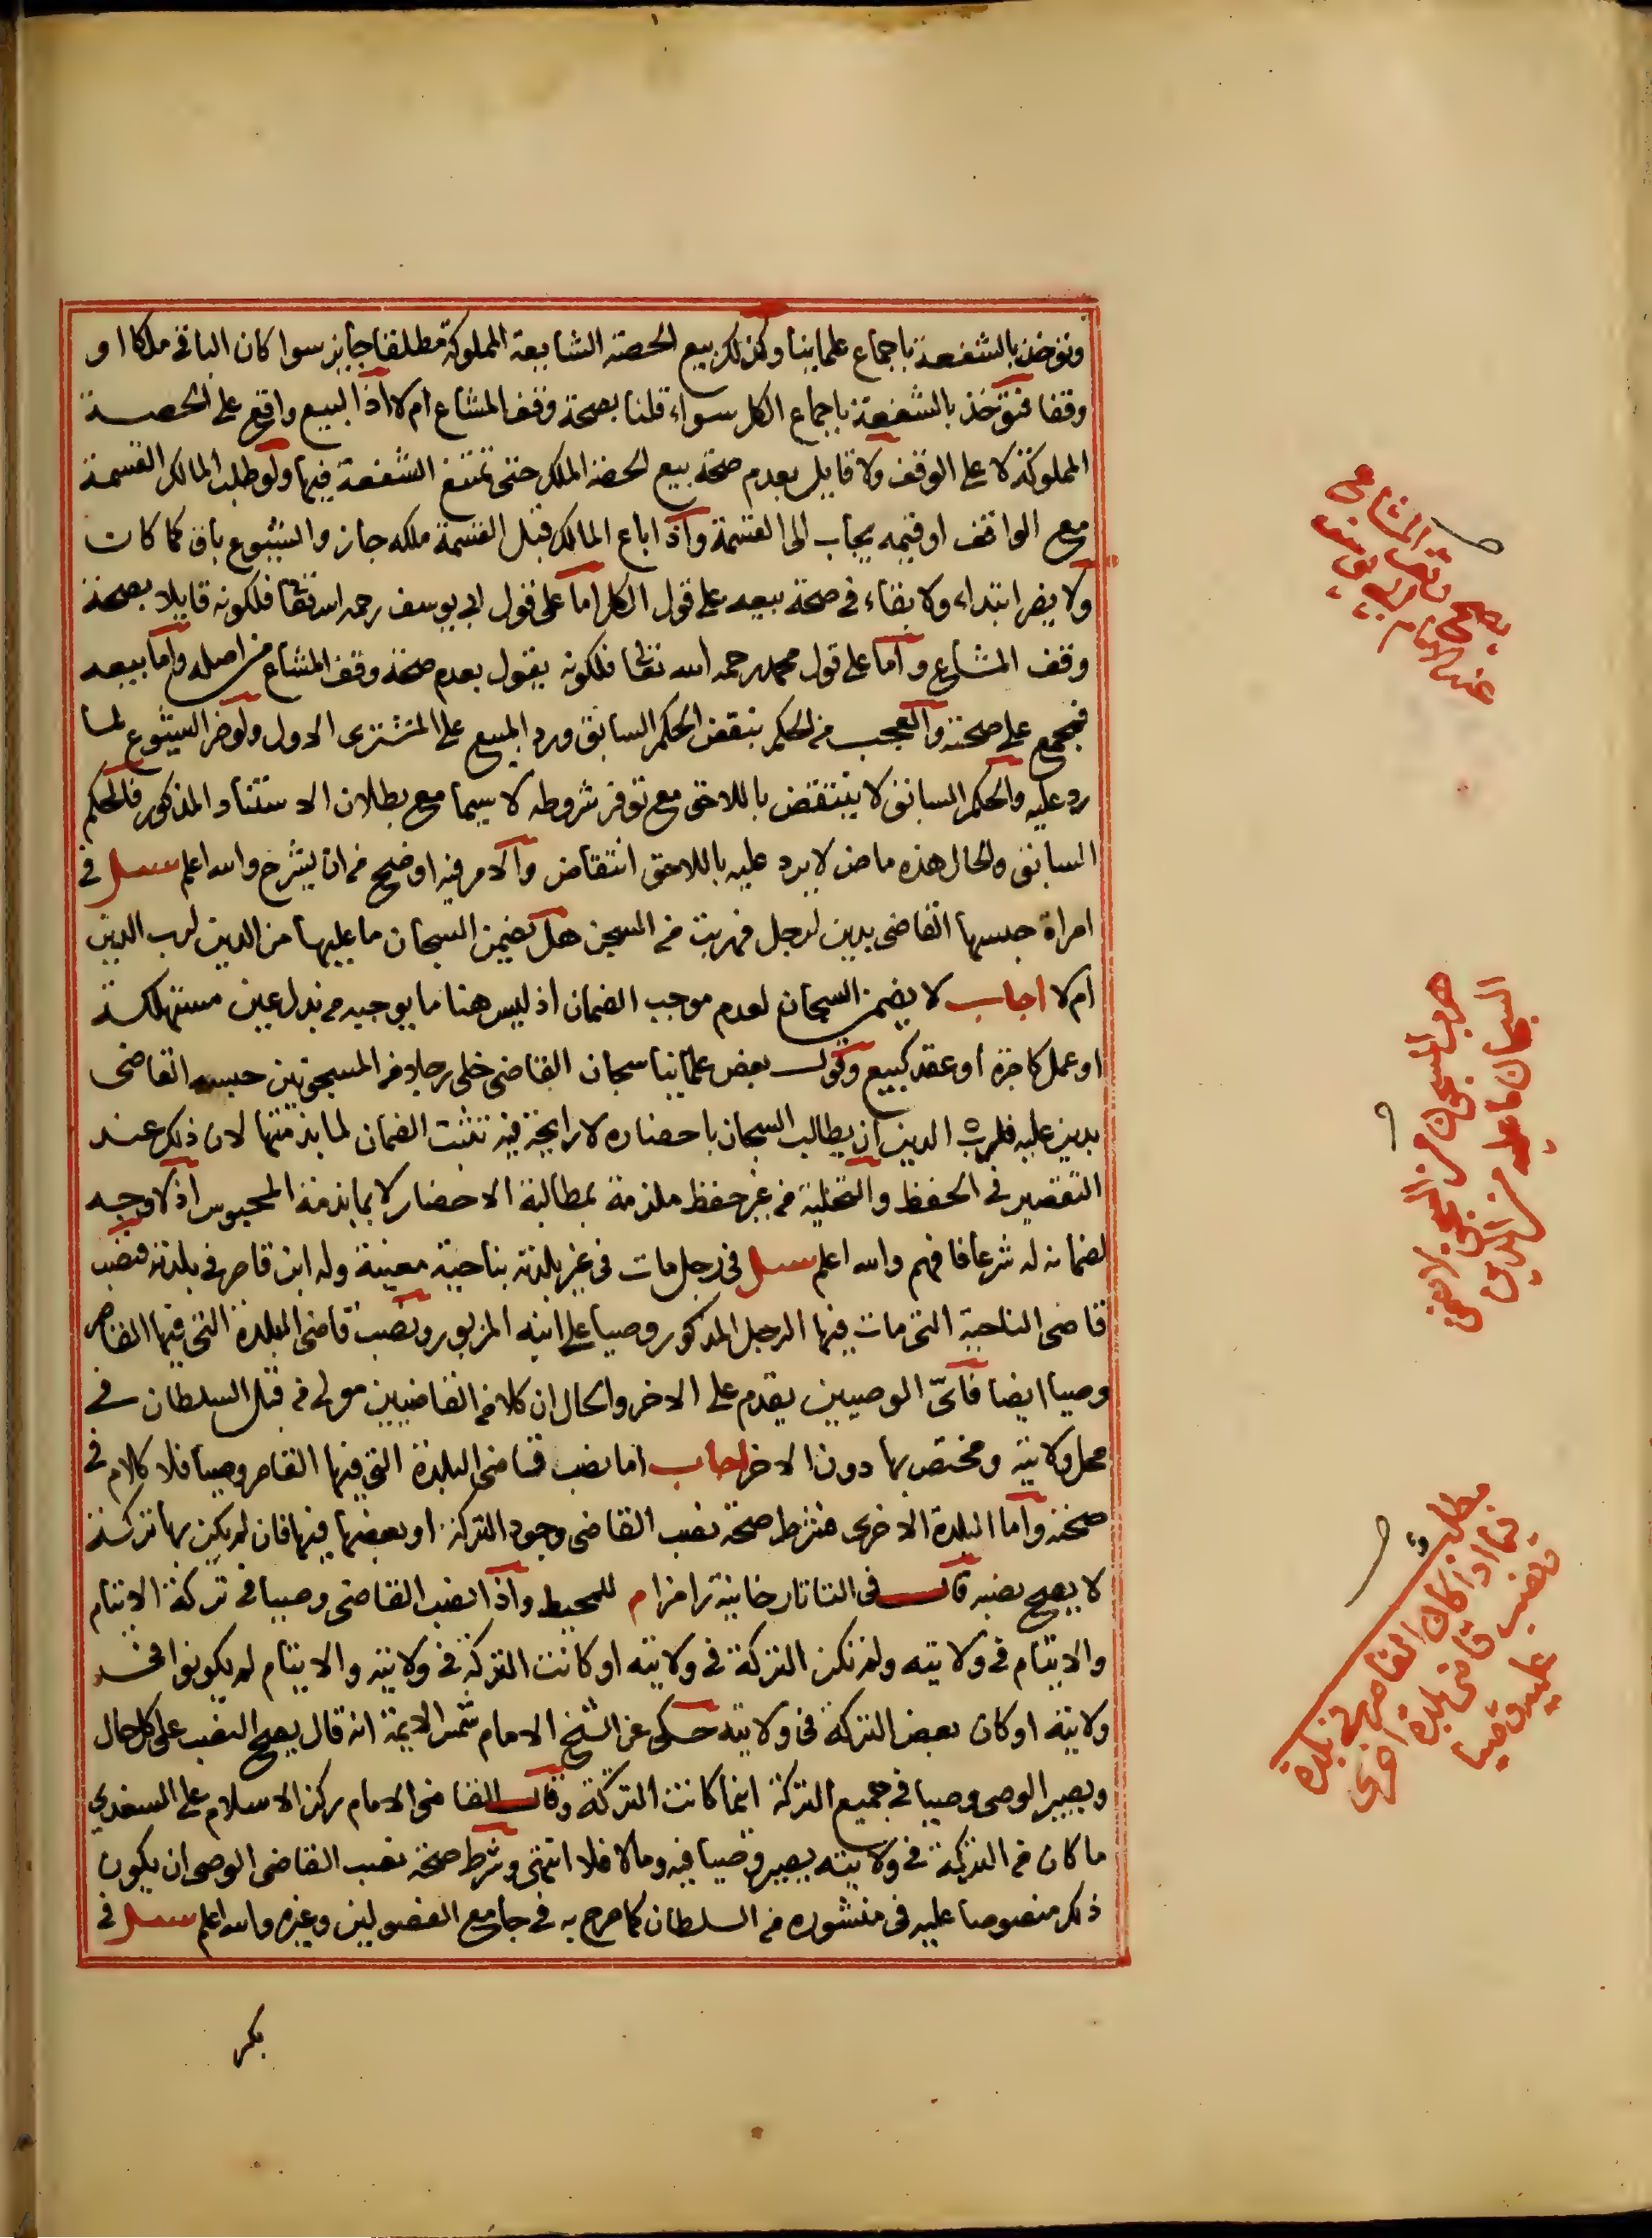 وتؤخذ بالشفعة باجماع علماينا وكذلك بيع الحصة الشايعة المملوكة مطلقا جايز سوا كان الباقى ملكا او
وقفا فتؤخذ بالشفعة باجماع الكل سواء قلنا بصحة وقف المشاع ام لا اذ البيع واقع على الحصة
المملوكة لا على الوقف ولا قايل بعدم صحة بيع الحصة الملك حتى تمتنع الشفعة فيها ولو طلب المالك القسمة
مع الواقف او قيمه يجاب الى القسمة واذا باع المالك قبل القسمة ملكه جاز والشيوع باق كما كان
ولا يضر ابتداء ولا بقاء فى صحة بيعه على قول الكل اما على قول ابى يوسف رحمه الله تعالى فلكونه قايلا بصحة
وقف المشاع واما على قول محمد رحمه الله تعالى فلكونه يقول بعدم صحة وقف المشاع من اصله واما بيعه
فمجمع على صحته والعجب من الحكم بنقض الحكم السابق ورد المبيع على المشترى الاول ولو ضر الشيوع لما
رد عليه والحكم السابق لا ينتقض باللاحق مع توفر شروطه لا سيما مع بطلان الاستناد المذكور فالحكم
السابق والحال هذه ماض لا يرد عليه باللاحق انتقاض والامر فيه اوضح من ان يشرح والله اعلم سئل فى
امراة حبسها القاضى بدين لرجل فهربت من السجن هل يضمن السجان ما عليها من الدين لرب الدين
ام لا اجاب لا يضمن السجان لعدم موجب الضمان اذ ليس هنا ما يوجبه من بدل عين مستهلكة
او عمل كاجرة او عقد كبيع وقول بعض علماينا سجان القاضى خلى رجلا من المسجونين حبسه القاضى
بدين عليه فلرب الدين ان يطالب السجان باحضاره لا رايحة فيه تثبت الضمان لما بذمتها لان ذلك عند
التقصير فى الحفظ والتخلية من غير حفظ ملزمة بمطالبة الاحضار لا بما بذمة المحبوس اذ لا وجه
لضمانه له شرعا فافهم والله اعلم سئل فى رجل مات فى غير بلدته بناحية معينة وله ابن قاصر فى بلدته فنصب
قاضى الناحية التى مات فيها الرجل المذكور وصيا على ابنه المزبور ونصب قاضى البلدة التى فيها القاصر
وصيا ايضا فاىّ الوصيين يقدم على الاخر والحال ان كلا من القاضيين مولى من قبل السلطان فى
محل ولايته ومختص بها دون الاخر اجاب اما نصب قاضى البلدة التى فيها القاصر وصيا فلا كلام فى
صحته واما البلدة الاخرى فشرط صحة نصب القاضى وجود التركة او بعضها فيها فان لم يكن بها تركة
لا يصح نصبه قال فى التاتارخانية رامزا م للمحيط واذا نصب القاضى وصيا فى تركة الايتام
والايتام فى ولايته ولم تكن التركة فى ولايته او كانت التركة فى ولايته والايتام لم يكونوا فى
ولايته او كان بعض التركة فى ولايته حكى عن الشيخ الامام شمس الايمة انه قال يصح النصب على كل حال
ويصير الوصى وصيا فى جميع التركة اينما كانت التركة وقال القاضى الامام ركن الاسلام على السغدى
ما كان من التركة فى ولايته يصير وصيا فيه وما لا فلا انتهى وشرط صحة نصب القاضى الوصى ان يكون
ذلك منصوصا عليه فى منشوره من السلطان كما صرح به فى جامع الفصولين وغيره والله اعلم سئل فى
بكر
يصح وقف المشاع
عند الامام ابى يوسف
هرب المسجون من السجن لا يضمن
السجان ما عليه من الدين
مطلب
فيما اذا كان القاصر فى بلدة
ونصب قاضى بلدة اخرى
عليه وصيا